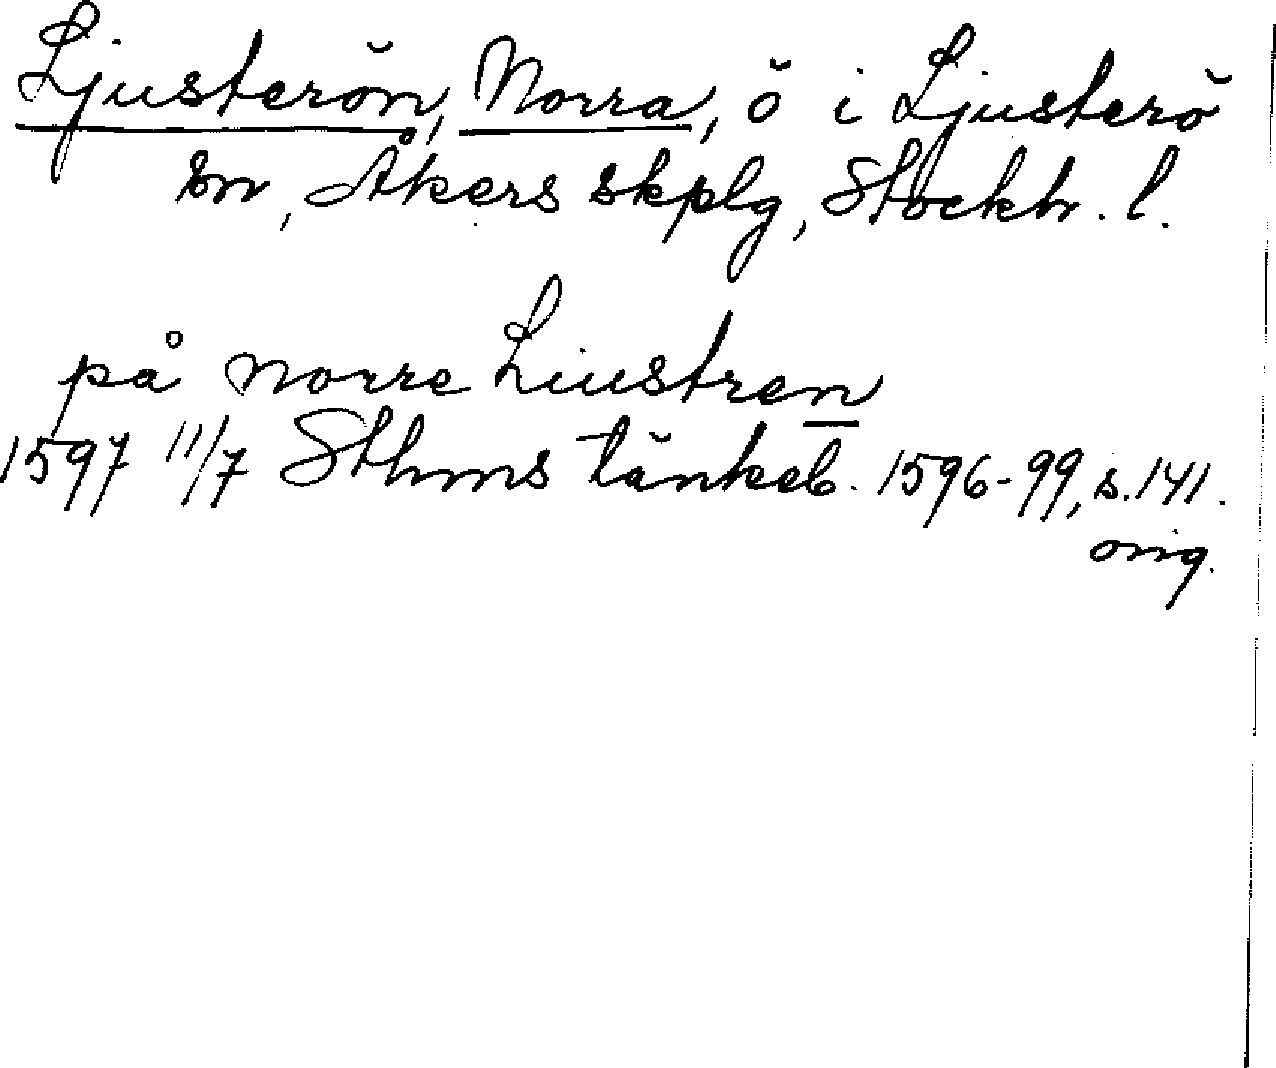 Ljusterön, Norra, ö i Ljusterö
sn, Åkers skplg, Stockh. l.
på norre Liustren
1597 11/7 Sthms tänkeb. 1596-99, s. 141.
orig.